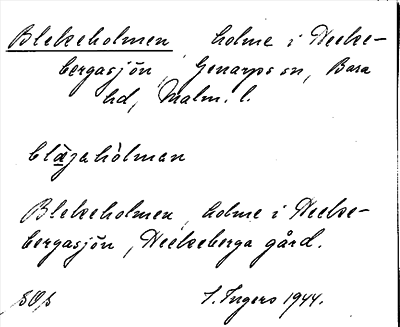 Blekeholmen, holme i Hecke-
bergasjön, Genarps sn, Bara
hd, Malm. l.
blӕjahòlman
Blekeholmen, holme i Hecke-
bergasjön, Heckeberga gård.
I. Ingers 1944.